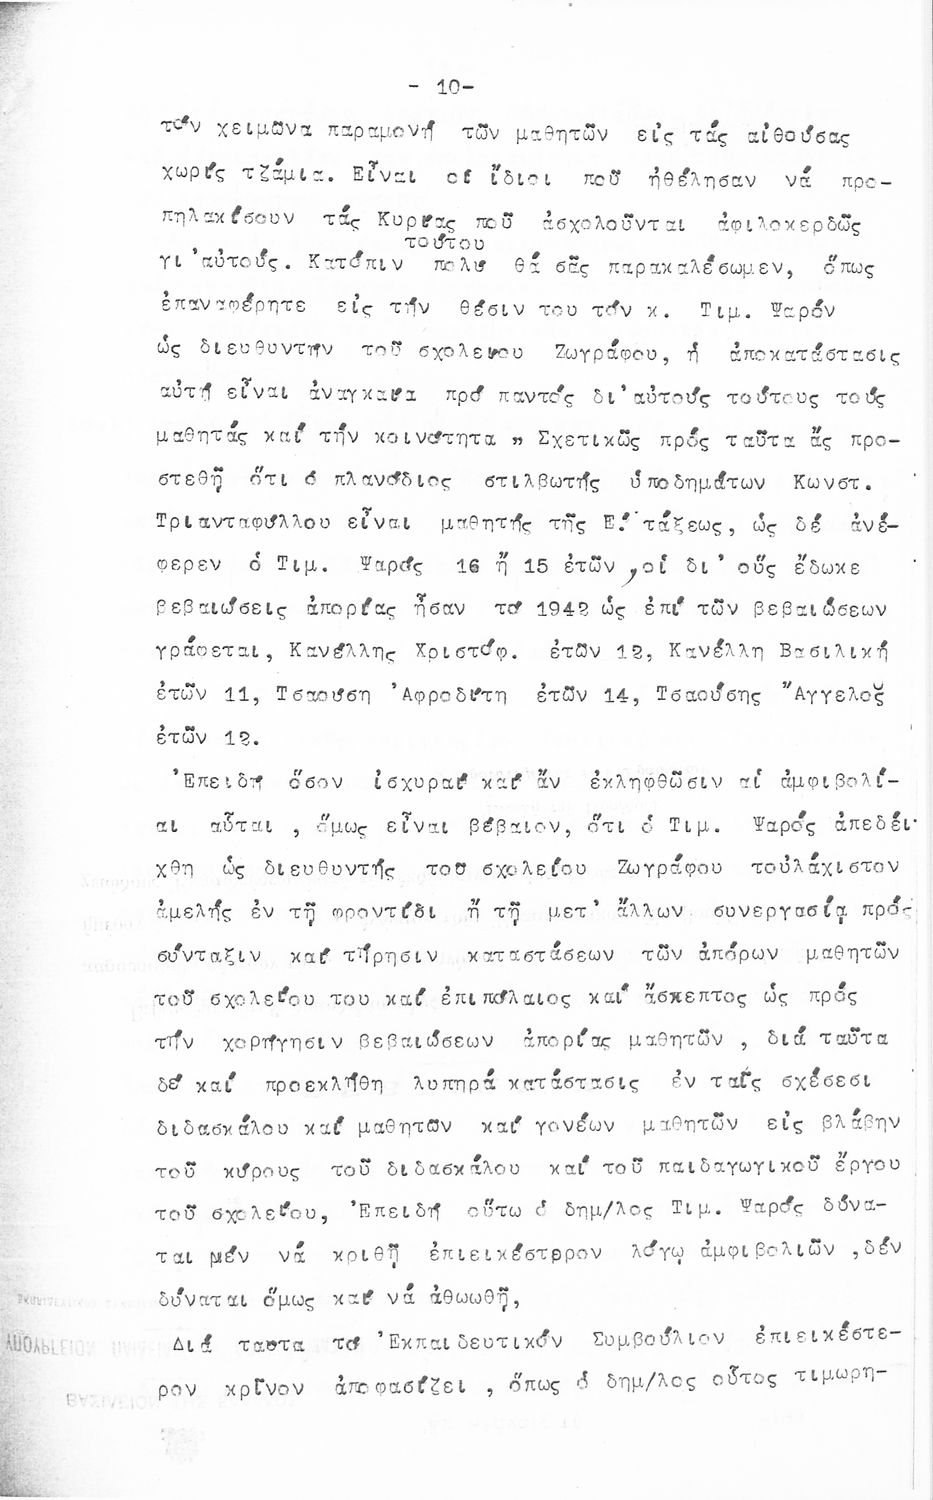 - 10-
τόν χειμῶνα παραμονή τῶν μαθητῶν εἰς τάς αἰθούσας
χωρίς τζάμια. Εἶναι οἱ ἴδιοι ποῦ ἠθέλησαν νά προ-
πηλακίσουν τάς Κυρίας ποῦ ἀσχολοῦνται ἀφιλοκερδῶς
τούτου
γι'αὐτούς. Κατόπιν πολύ θά σᾶς παρακαλέσωμεν, ὅπως
ἐπαναφέρητε εἰς τήν θέσιν του τόν κ. Τιμ. Ψαρόν
ὡς διευθυντήν τοῦ σχολείου Ζωγράφου, ἡ ἀποκατάστασις
αὐτή εἶναι ἀναγκαία πρό παντός δι'αὐτούς τούτους τούς
μαθητάς καί τήν κοινότητα " Σχετικῶς πρός ταῦτα ἄς προ-
στεθῇ ὅτι ὁ πλανόδιος στιλβωτής ὑποδημάτων Κωνστ.
Τριανταφύλλου εἶναι μαθητής τῆς Ε!'τάξεως, ὡς δέ ἀνέ-
φερεν ὁ Τιμ. Ψαρός 16 ἤ 15 ἐτῶν ,οἱ δι' οὕς ἔδωκε
βεβαιώσεις ἀπορίας ἦσαν τό 1942 ὡς ἐπί τῶν βεβαιώσεων
γράφεται, Κανέλλης Χριστόφ. ἐτῶν 12, Κανέλλη Βασιλική
ἐτῶν 11, Τσαούση 'Αφροδίτη ἐτῶν 14, Τσαούσης "Αγγελος
ἐτῶν 12.
'Επειδή ὅσον ἰσχυραί καί ἄν ἐκληφθῶσιν αἱ ἀμφιβολί-
αι αὗται , ὅμως εἶναι βέβαιον, ὅτι ὁ Τιμ. Ψαρός ἀπεδεί-
χθη ὡς διευθυντής τοῦ σχολείου Ζωγράφου τοὐλάχιστον
ἀμελής ἐν τῇ φροντίδι ἤ τῇ μετ' ἄλλων συνεργασίᾳ πρός
σύνταξιν καί τήρησιν καταστάσεων τῶν ἀπόρων μαθητῶν
τοῦ σχολείου του καί ἐπιπόλαιος καί ἄσκεπτος ὡς πρός
τήν χορήγησιν βεβαιώσεων ἀπορίας μαθητῶν , διά ταῦτα
δέ καί προεκλήθη λυπηρά κατάστασις ἐν ταῖς σχέσεσι
διδασκάλου καί μαθητῶν καί γονέων μαθητῶν εἰς βλάβην
τοῦ κύρους τοῦ διδασκάλου καί τοῦ παιδαγωγικοῦ ἔργου
τοῦ σχολείου, 'Επειδή οὕτω ὁ δημ/λος Τιμ. Ψαρός δύνα-
ται μέν νά κριθῇ ἐπιεικέστερον λόγῳ ἀμφιβολιῶν ,δέν
δύναται ὅμως καί νά ἀθωωθῇ,
Διά ταυτα τό 'Εκπαιδευτικόν Συμβούλιον ἐπιεικέστε-
ρον κρῖνον ἀποφασίζει , ὅπως ὁ δημ/λος οὗτος τιμωρη-